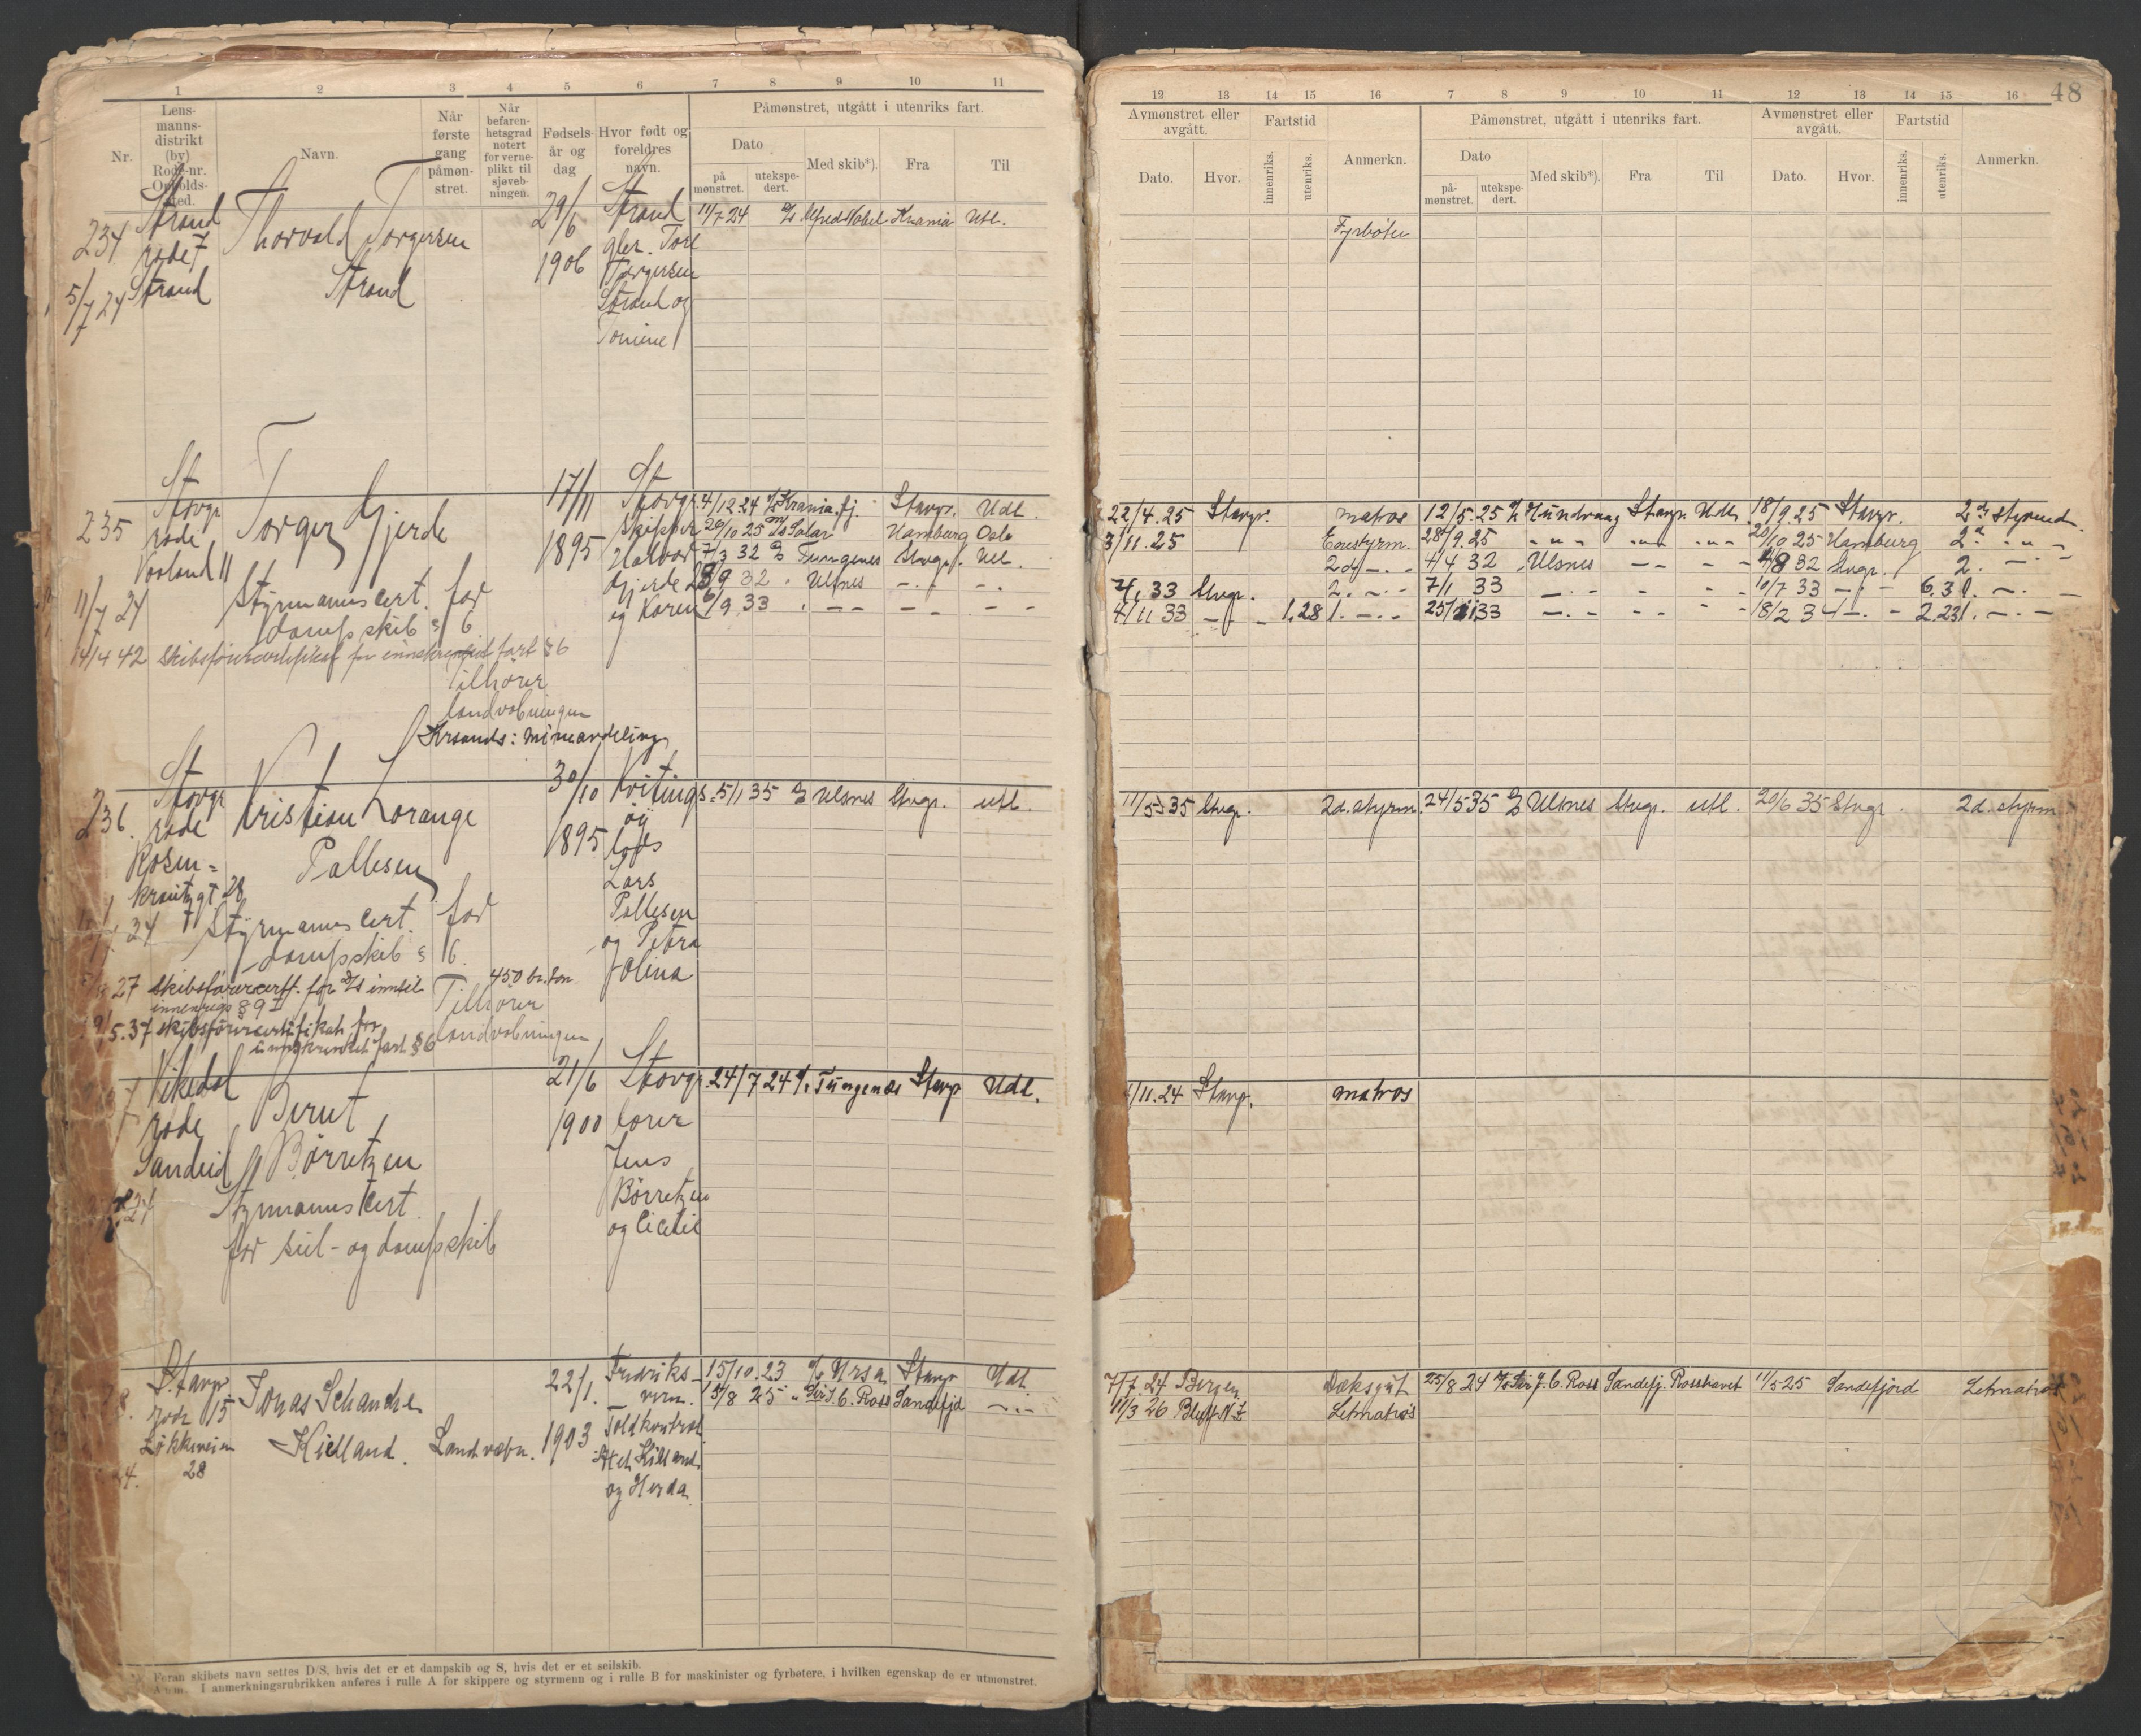 48
1 2 3 4 5 6 7 8 9 10 11
Nr.
Lens-
manns-
distrikt
(by)
Rode-nr.
Opholds-
sted.
Navn.
Når
første
gang
påmøn-
stret.
Når
befaren-
hetsgrad
notert
for verne-
plikt til
sjøveb-
ningen.
Fødsels-
år og
dag
Hvor født og
foreldres
navn.
Påmønstret, utgått i utenriks fart.
Dato
på
mønstret.
utekspe-
dert.
Med skib*).
Fra
Til
234
5/7 24
Strand
rode 7
Strand
Thorvald Torgersen
Strand
29/6
1906
Strand
Tore
Torgersen
Strand og
Tomine
11/7 24 Alfred Nobel Krania Utl.
235
11/7 24
Stavgr
rode
Vaaland 11
Torger Gjerde
Styrmannscert. for
dampskib § 6
14/4 42 Skibsførercertifikat for innskrenket fart § 6
Tilhører
landvebningen
Krsands: mineavdeling
17/11
1895
Stavgr.
Skipper
Halvor
Gjerde
og Karen
4/12 24 Krania.fj. Stavgr. Utl.
20/10 25 Solar Hamburg Oslo
7/3 32 Tungenes Stvgr. Utl.
9 32 Ulsnes - . -
/9 33 . - - - - - -
236.
7 24
Stavgr
rode
Rosen-
krantzgt 28
Kristian Lorange
Pallesen
Styrmannscert. for
dampskib § 6.
27 Skibsførercertf. for D/S inntil 450 br. ton
innenriks § 9 I
5.37 skibsførercertifikat for
innskrenket fart § 6
Tilhører
landvebningen
30/10
1895
Kvitings-
øy
lods
Lars
Pallesen
og Petra
Jolina
5/1 35 Ulsnes Stvgr. utl.
7
24
Vikedal
rode
Sandeid
Bernt
Børretzen
Styrmannscert.
for seil- og dampskib
21/6
1900
Stavgr.
Jens
Børretzen
og Cicelie
24/7 24 Tungenæs Stavgr Udl.
8.
24.
Stavgr
rode 15
Løkkeveien
28
Jonas Schanche
Kielland. Landvæbn.
22/1.
1903
Fredriks-
vern.
Toldkontrol
Kielland
og Herda
15/10.23 Ursa Stavgr Utl.
15/8 25 " Sir J. C. Ross Sandefjd - . -
Foran skibets navn settes D/S, hvis det er et dampskib og S, hvis det er et seilskib.
Anm. I anmerkningsrubrikken anføres i rulle A for skippere og styrmenn og i rulle B for maskinister og fyrbøtere, i hvilken egenskap de er utmønstret.
12 13 14 15 16 7 8 9 10 11 12 13 14 15 16
Avmønstret eller
avgått.
Dato.
Hvor.
Fartstid
innenriks.
utenriks.
Anmerkn.
Påmønstret, utgått i utenriks fart.
Dato
på-
mønstret.
utekspe-
dert.
Med skib*).
Fra
Til
Avmønstret eller
avgått.
Dato.
Hvor.
Fartstid
innenriks.
utenriks.
Anmerkn.
Fyrbøter
22/4.25 Stavgr. matros 12/5.25 Hundvaag Stavgr. Utl. 18/9.25 Stavgr. 2den styrmd.
3/11.25 Enestyrm. 28/9.25 - " - - " - - " - 20/10 25 Hamburg 2d - " -
2d - . - 4/4 32 Ulsnes - - - - /8 32 Stvgr. 2. - . -
33 Stvgr. 2. - . - 7/1 33 - . - - - - - 10/7 33 - . - 6,3 1. - . -
4/11 33 - . - 1,28 1. - . - 25/11 33 - . - - - - - 18/2 34 - . - 2.23 1. - . -
11/5 35 Stvgr. 2d. styrm. 24/5 35 Ulsnes Stvgr. utl. 20/6 35 Stvgr. 2d. styrm
/11.24 Stavgr. matros
7/7.24 Bergen Dæksgut 25/8 24 Sir J. C. Ross Sandefj. Rosshavet 11/5-25 Sandefjord Letmatros
11/3 26 Bluff N.Z. Letmatros